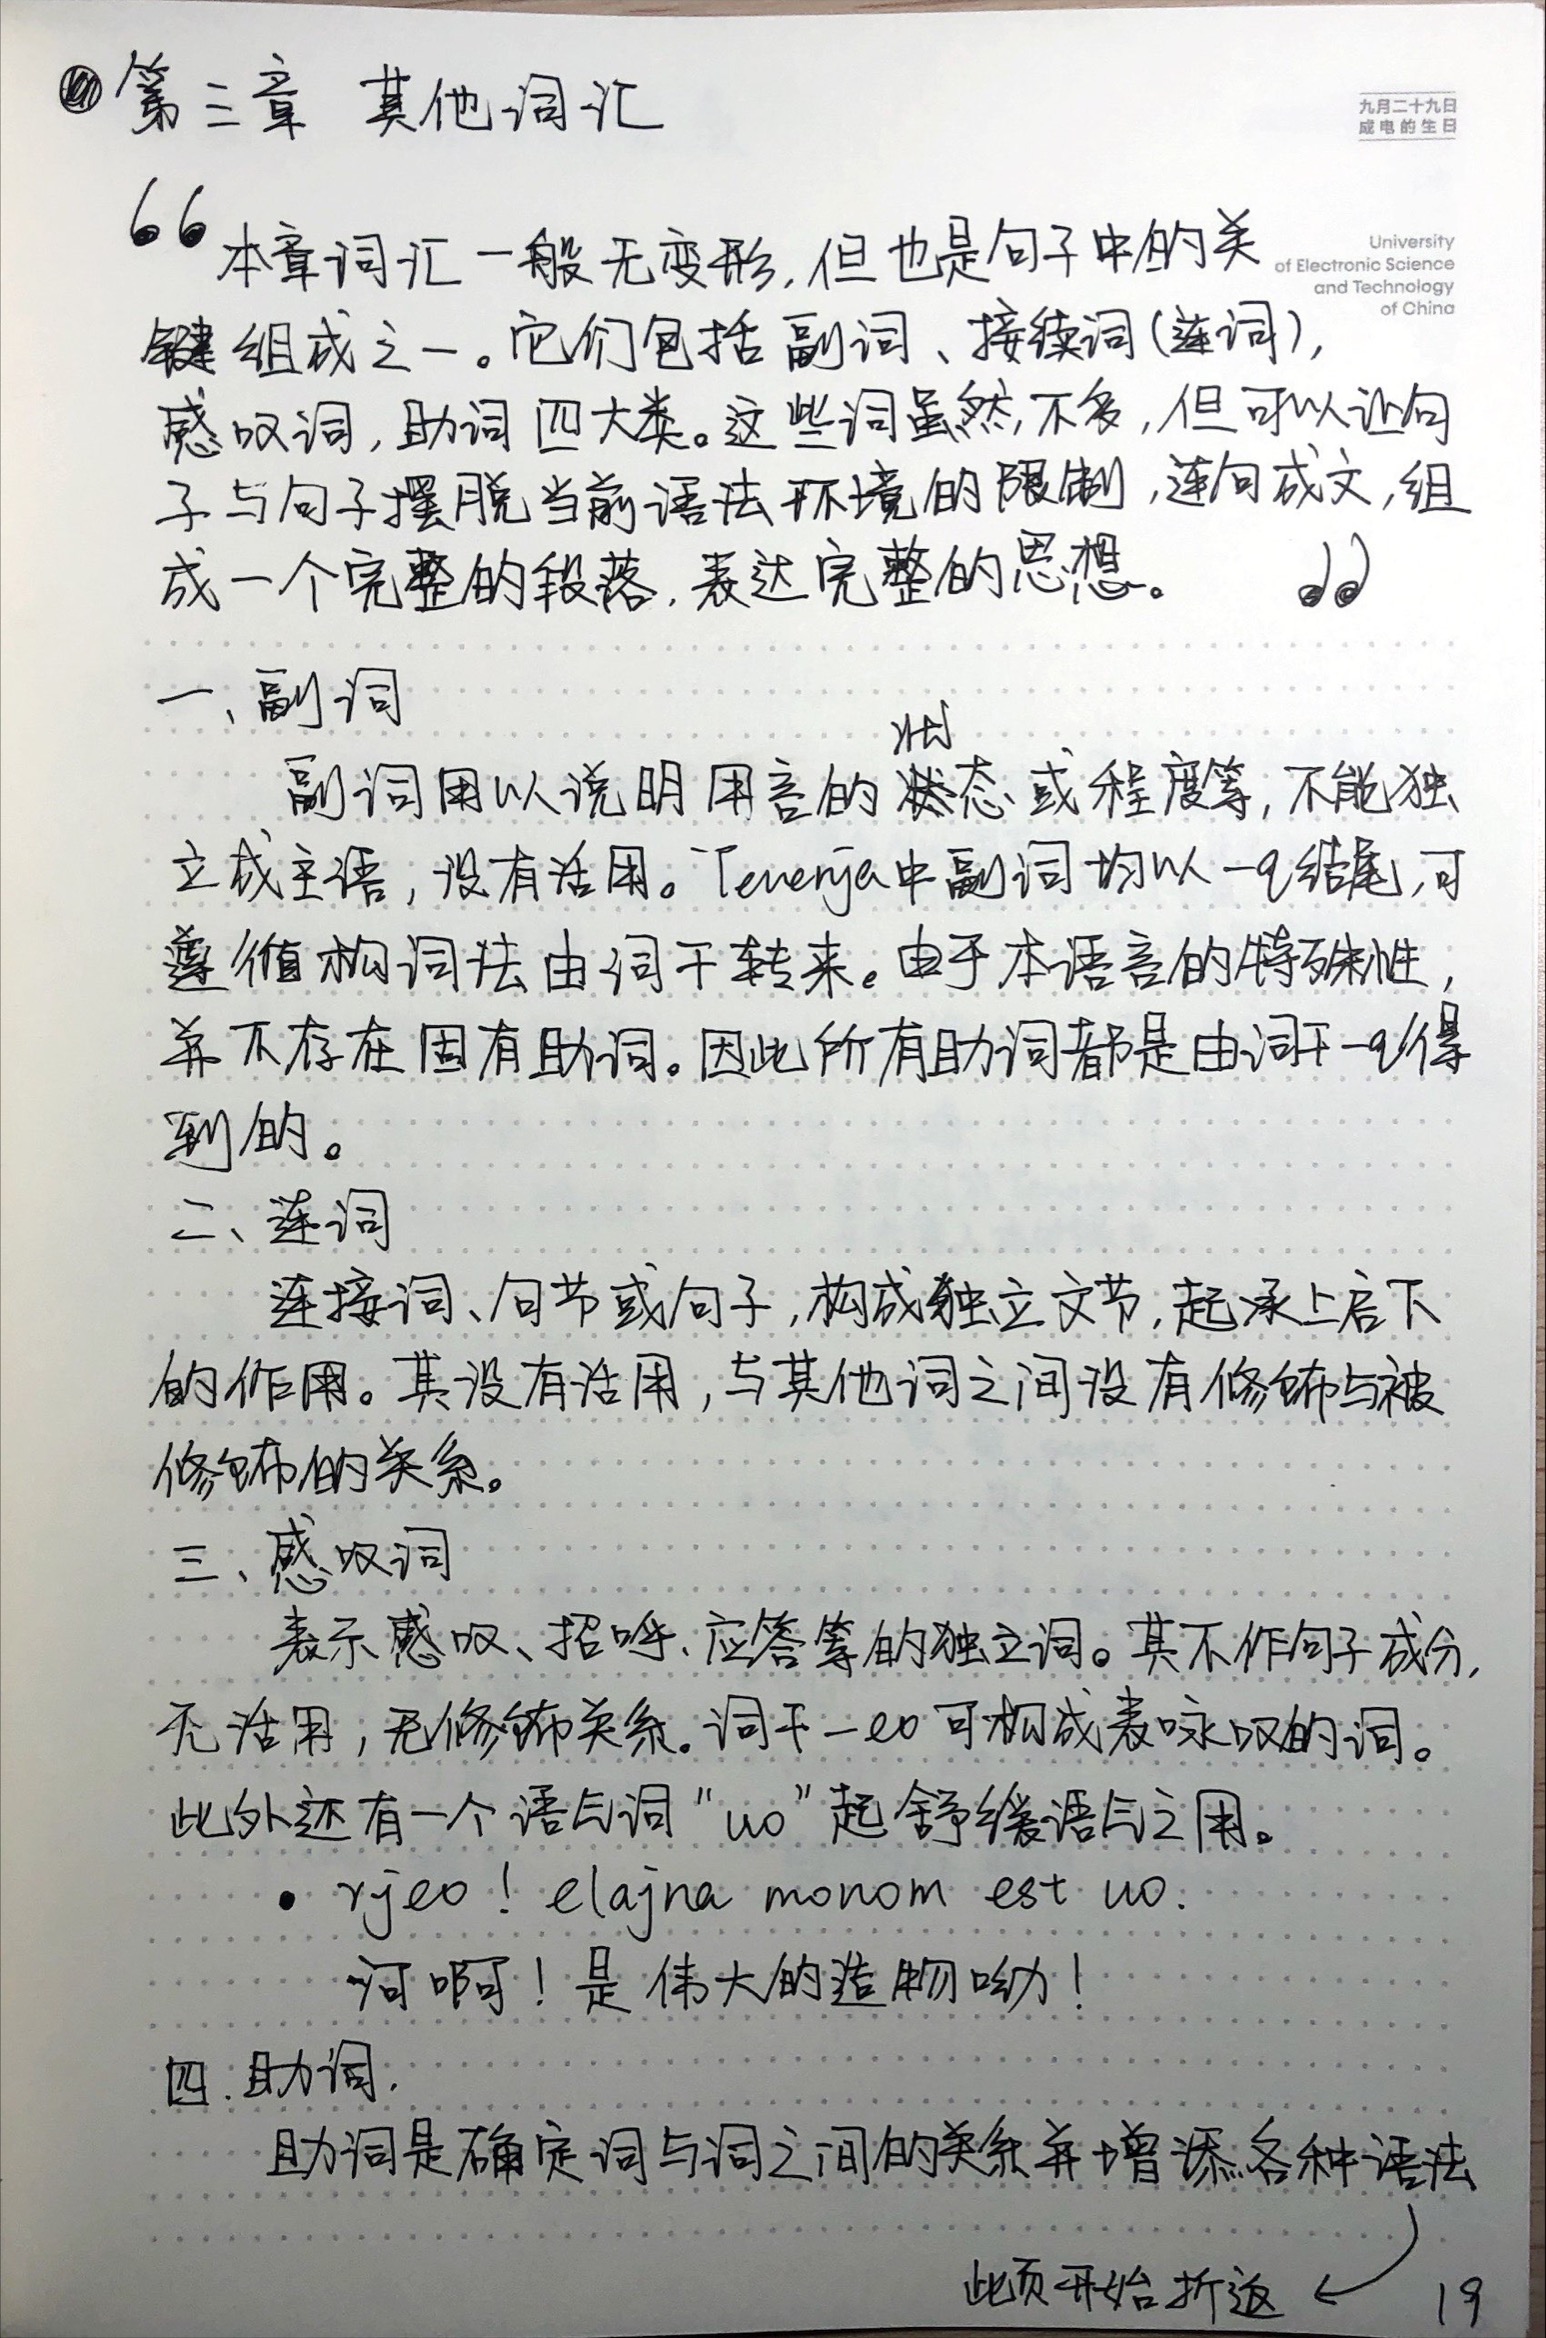 第三章 其他词汇
九月二十九日
成电的生日
University
of Electronic Science
and Technology
of China
“本章词汇一般无变形，但也是句子中的关
键组成之一。它们包括副词、接续词（连词），
感叹词，助词四大类。这些词虽然不多，但可以让句
子与句子摆脱当前语法环境的限制，连句成文，组
成一个完整的段落，表达完整的思想。”
一、副词
状
副词用以说明用言的状态或程度等，不能独
立成主语，没有活用。Tenenja中副词均以-q结尾，可
遵循构词法由词干转来。由于本语言的特殊性，
并不存在固有助词。因此所有助词都是由词干-q得
到的。
二、连词
连接词、句节或句子，构成独立文节，起承上启下
的作用。其没有活用，与其他词之间没有修饰与被
修饰的关系。
三、感叹词
表示感叹、招呼、应答等的独立词。其不作句子成分，
无活用，无修饰关系。词干-eo可构成表咏叹的词。
此外还有一个语气词"uo"起舒缓语气之用。
• rjeo! elajna monom est uo.
河啊！是伟大的造物呦！
四.助词.
助词是确定词与词之间的关系并增添各种语法
此页开始折返 ←
19